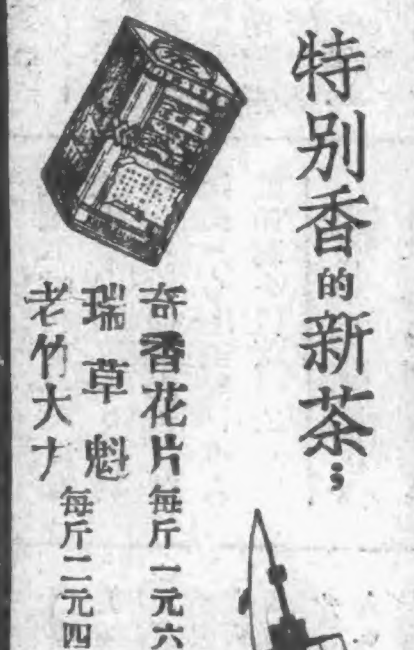 特别香的新茶；
奇香花片每斤一元六
瑞草魁每斤二元四
老竹大方